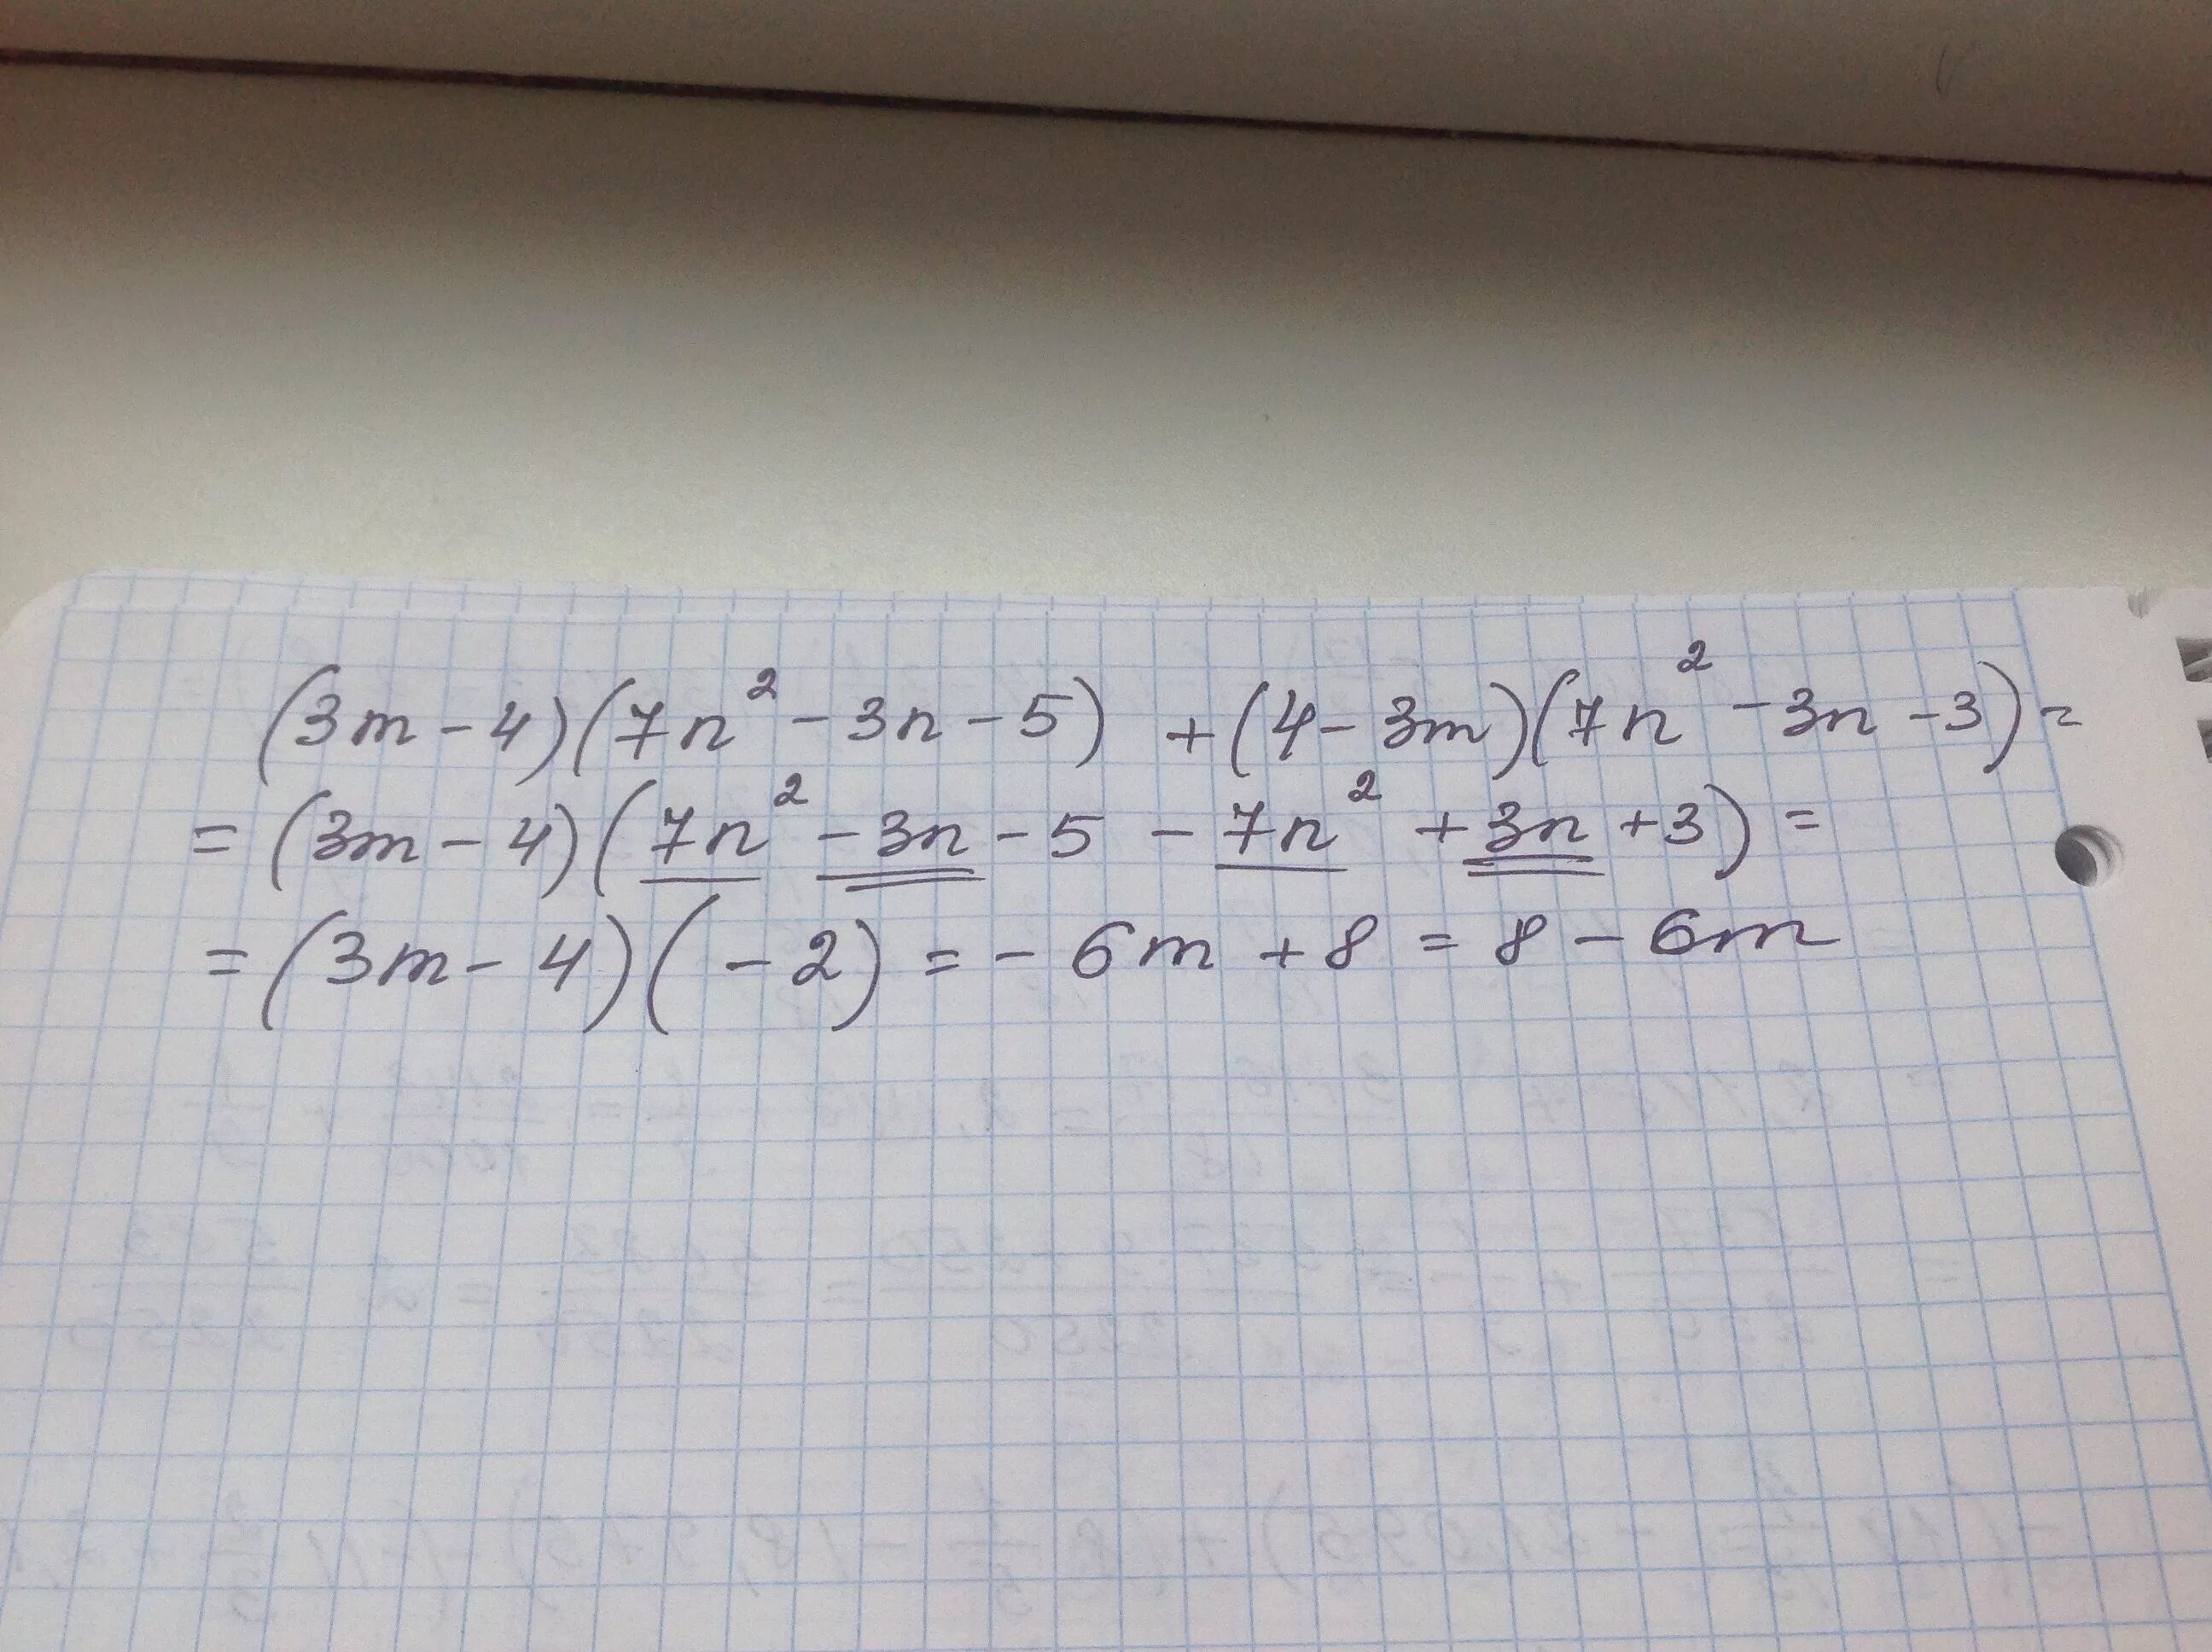 (3m-4)(7n²-3n-5) +(4-3m)(7n²-3n-3)=
=(3m-4)(7n²-3n-5-7n²+3n+3)=
=(3m-4)(-2)=-6m+8=8-6m